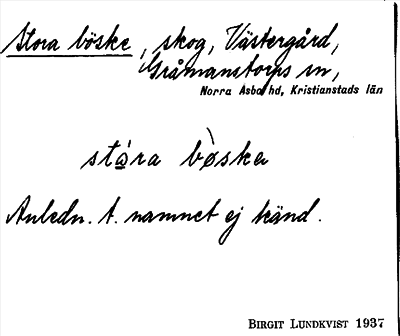 Stora böske, skog, Västergård,
Gråmanstorps sn,
Norra Åsbo hd, Kristianstads län
stá̱ra bø̀skɘ
Anledn. t. namnet ej känd.
BIRGIT LUNDKVIST 1937